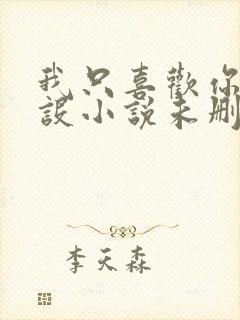 我只喜歡你
設小說未刪
李天森